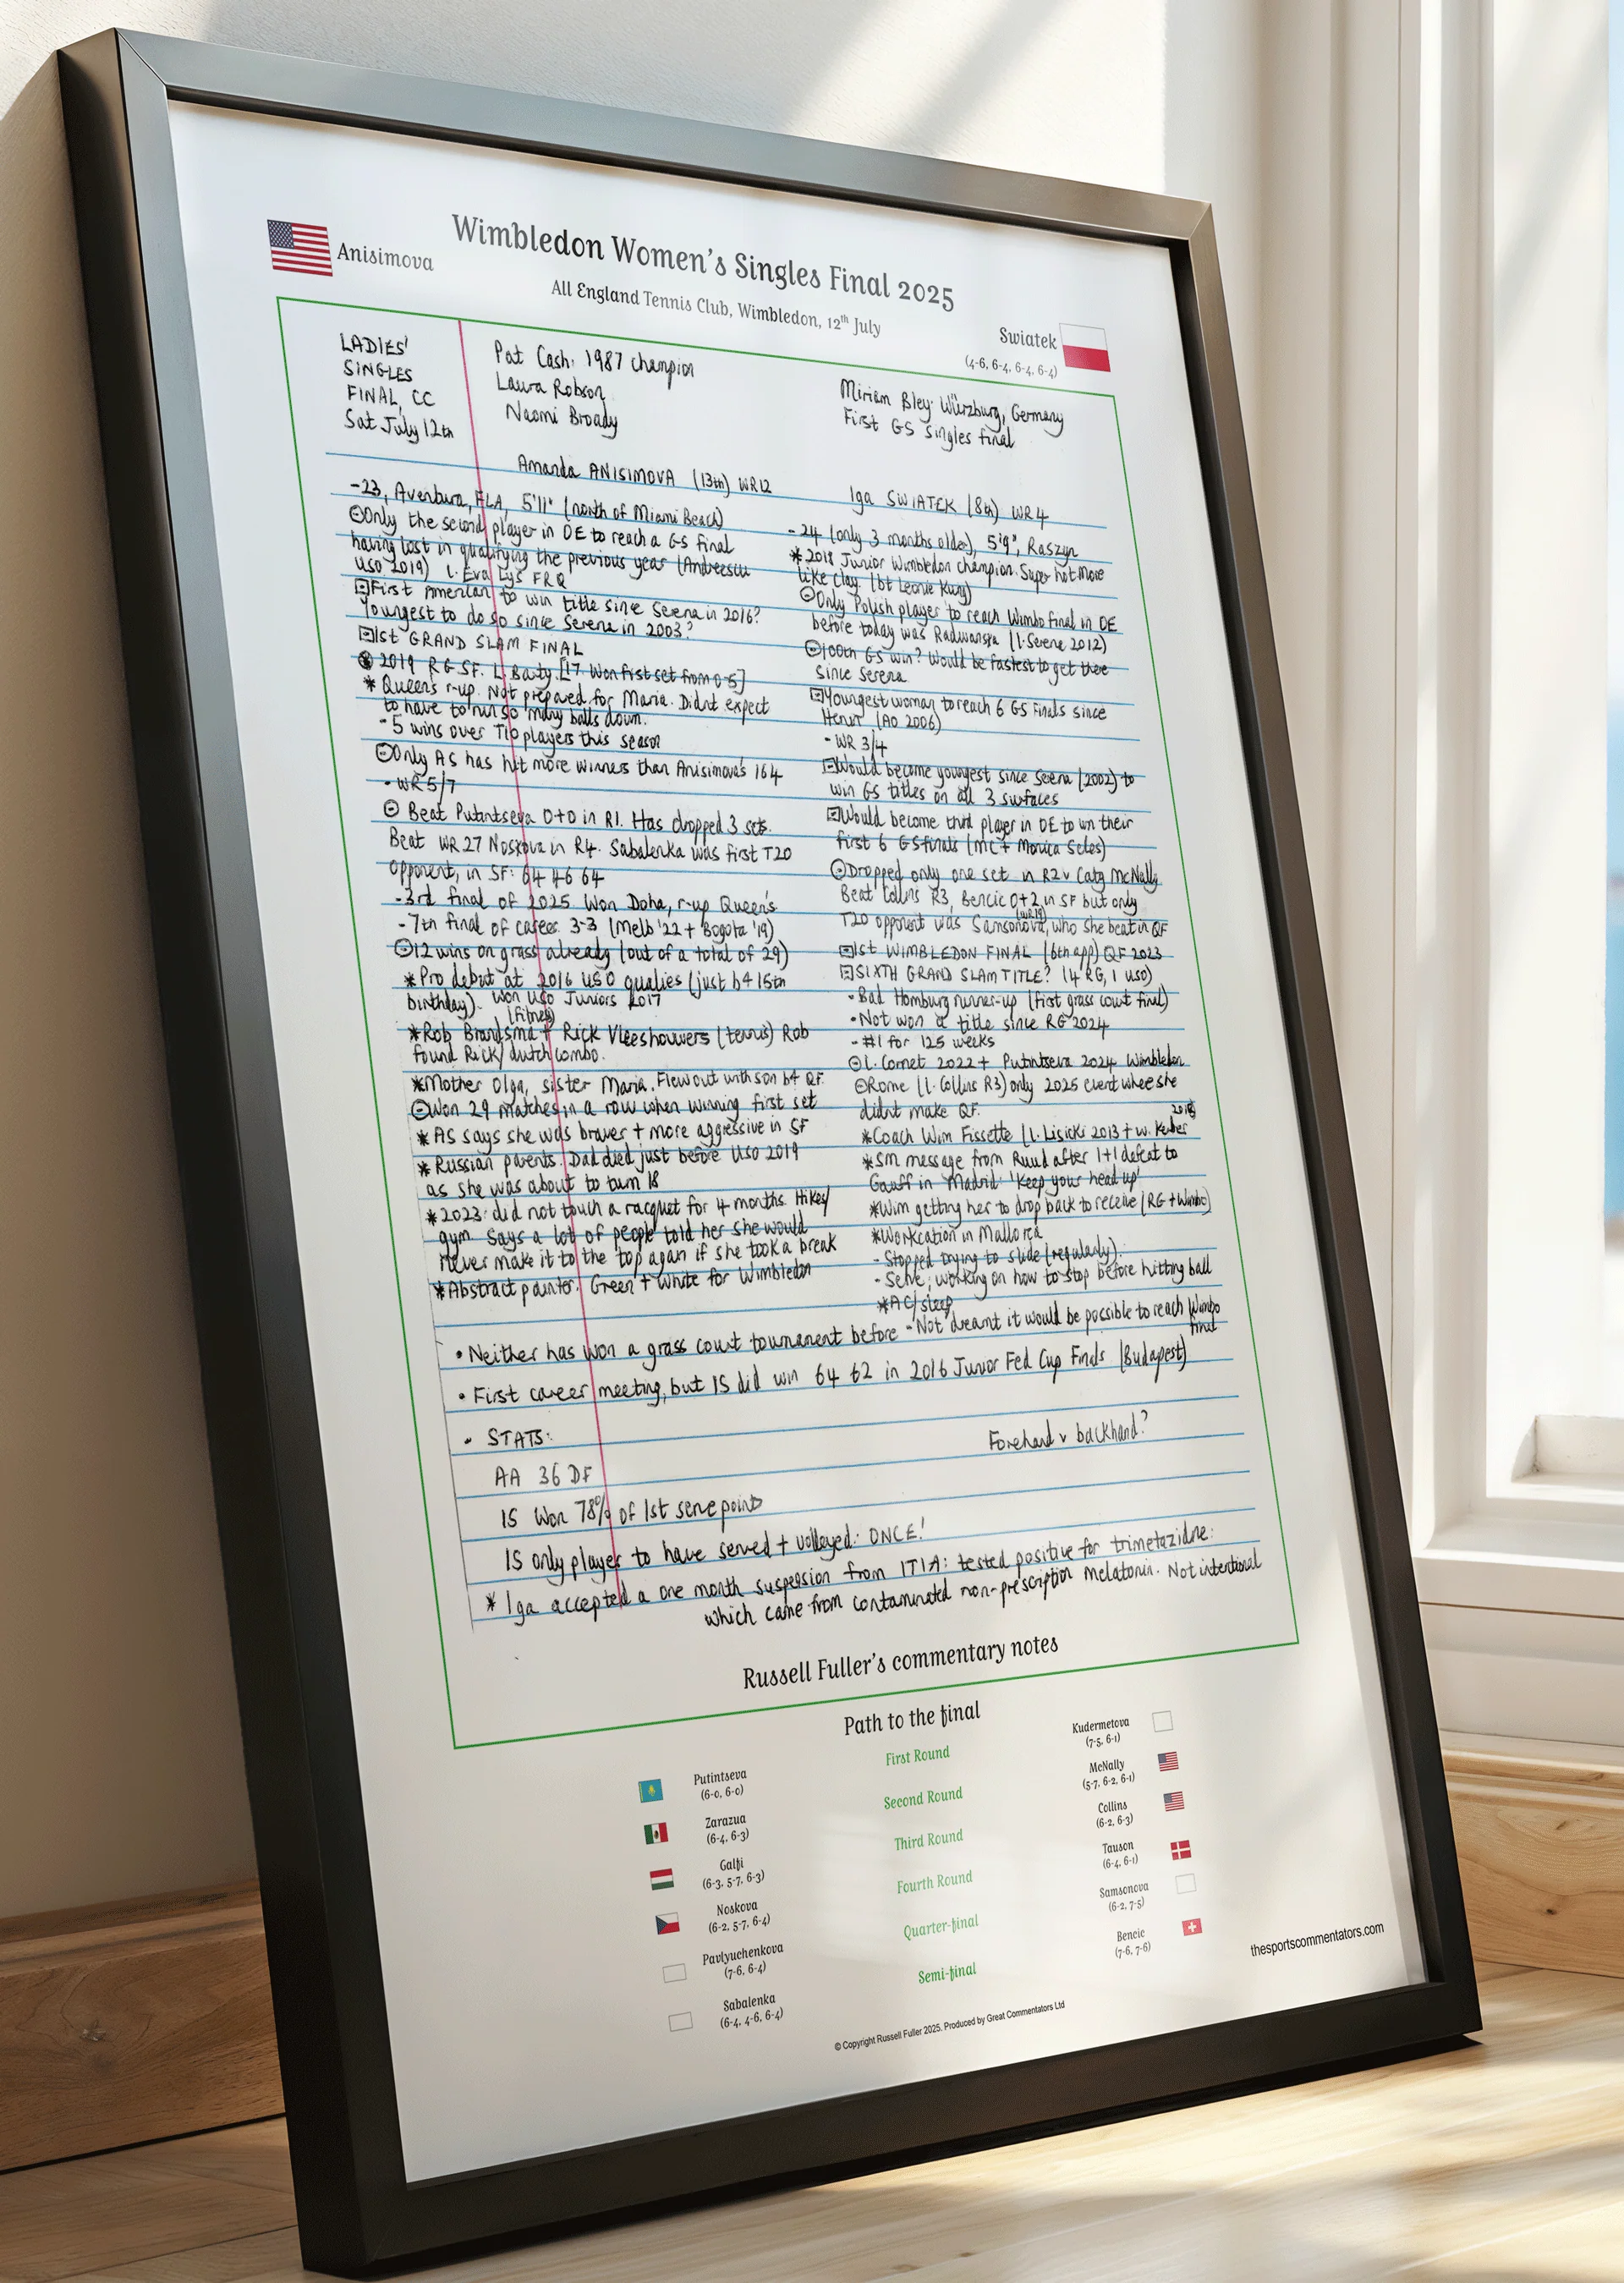 Wimbledon Women's Singles Final 2025
Anisimova
All England Tennis Club, Wimbledon, 12th July
Swiatek
(4-6, 6-4, 6-4, 6-4)
LADIES'
SINGLES
FINAL, CC
Sat July 12th
Pat Cash: 1987 champion
Laura Robson
Naomi Broady
Miriam Bley: Würzburg, Germany
First GS singles final
Amanda ANISIMOVA (13th) WR12
-23, Aventura, FLA, 5'11" (north of Miami Beach)
Only the second player in OE to reach a GS final
having lost in qualifying the previous year (Andreescu
USO 2019) l. Eva Lys FRQ
First American to win title since Serena in 2016?
Youngest to do so since Serena in 2003?
1st GRAND SLAM FINAL
2019 RG SF. L. Barty [17. Won first set from 0-5]
* Queen's r-up. Not prepared for Maria. Didn't expect
to have to run so many balls down.
- 5 wins over T10 players this season
Only AS has hit more winners than Anisimova's 164
- WR 5/7
Beat Putintseva 0+0 in R1. Has dropped 3 sets.
Beat WR 27 Noskova in R4. Sabalenka was first T20
opponent, in SF: 64 46 64
-3rd final of 2025. Won Doha, r-up Queen's
- 7th final of career. 3-3 (Melb '22 + Bogota '19)
12 wins on grass already (out of a total of 29)
*Pro debut at 2016 USO qualies (just b4 15th
birthday). Won USO Juniors 2017
(fitness)
*Rob Brandsma + Rick Vleeshouwers (tennis) Rob
found Rick/dutch combo.
*Mother Olga, sister Maria. Flew out with son b4 QF.
Won 29 matches in a row when winning first set
* AS says she was braver + more aggressive in SF
* Russian parents. Dad died just before USO 2019
as she was about to turn 18
* 2023: did not touch a racquet for 4 months. Hikes/
gym. Says a lot of people told her she would
never make it to the top again if she took a break
*Abstract painter. Green + white for Wimbledon
Iga SWIATEK (8th) WR 4
- 24 (only 3 months older), 5'9", Raszyn
* 2018 Junior Wimbledon champion. Super hot more
like clay. (bt Leonie Kung)
Only Polish player to reach Wimbo final in OE
before today was Radwanska (l. Serena 2012)
100th GS win? Would be fastest to get there
since Serena
Youngest woman to reach 6 GS finals since
Henin (AO 2006)
- WR 3/4
Would become youngest since Serena (2002) to
win GS titles on all 3 surfaces
Would become third player in OE to win their
first 6 GS finals (MC + Monica Seles)
Dropped only one set in R2 v Caty McNally
Beat Collins R3, Bencic 0+2 in SF but only
T20 opponent was Samsonova, (WR19) who she beat in QF
1st WIMBLEDON FINAL (6th app) QF 2023
SIXTH GRAND SLAM TITLE? (4 RG, 1 USO)
- Bad Homburg runner-up (first grass court final)
- Not won a title since RG 2024
- #1 for 125 weeks
l. Cornet 2022 + Putintseva 2024 Wimbledon
Rome (l. Collins R3) only 2025 event where she
didn't make QF.
*Coach Wim Fissette (l. Lisicki 2013 + w. Kerber 2018
*SM message from Ruud after 1+1 defeat to
Gauff in Madrid: 'Keep your head up'
*Wim getting her to drop back to receive (RG + Wimbo)
*Workcation in Mallorca
- Stopped trying to slide (regularly).
- Serve; working on how to stop before hitting ball
*AC/sleep
• Neither has won a grass court tournament before - Not dreamt it would be possible to reach Wimbo
final
• First career meeting, but IS did win 64 62 in 2016 Junior Fed Cup Finals (Budapest)
• STATS:
Forehand v backhand?
AA 36 DF
IS Won 78% of 1st serve points
IS only player to have served + volleyed: ONCE!
* Iga accepted a one month suspension from ITIA: tested positive for trimetazidine:
which came from contaminated non-prescription melatonin. Not intentional
Russell Fuller's commentary notes
Path to the final
Putintseva
(6-0, 6-0)
First Round
Kudermetova
(7-5, 6-1)
Zarazua
(6-4, 6-3)
Second Round
McNally
(5-7, 6-2, 6-1)
Galfi
(6-3, 5-7, 6-3)
Third Round
Collins
(6-2, 6-3)
Noskova
(6-2, 5-7, 6-4)
Fourth Round
Tauson
(6-4, 6-1)
Pavlyuchenkova
(7-6, 6-4)
Quarter-final
Samsonova
(6-2, 7-5)
Sabalenka
(6-4, 4-6, 6-4)
Semi-final
Bencic
(7-6, 7-6)
thesportscommentators.com
© Copyright Russell Fuller 2025. Produced by Great Commentators Ltd